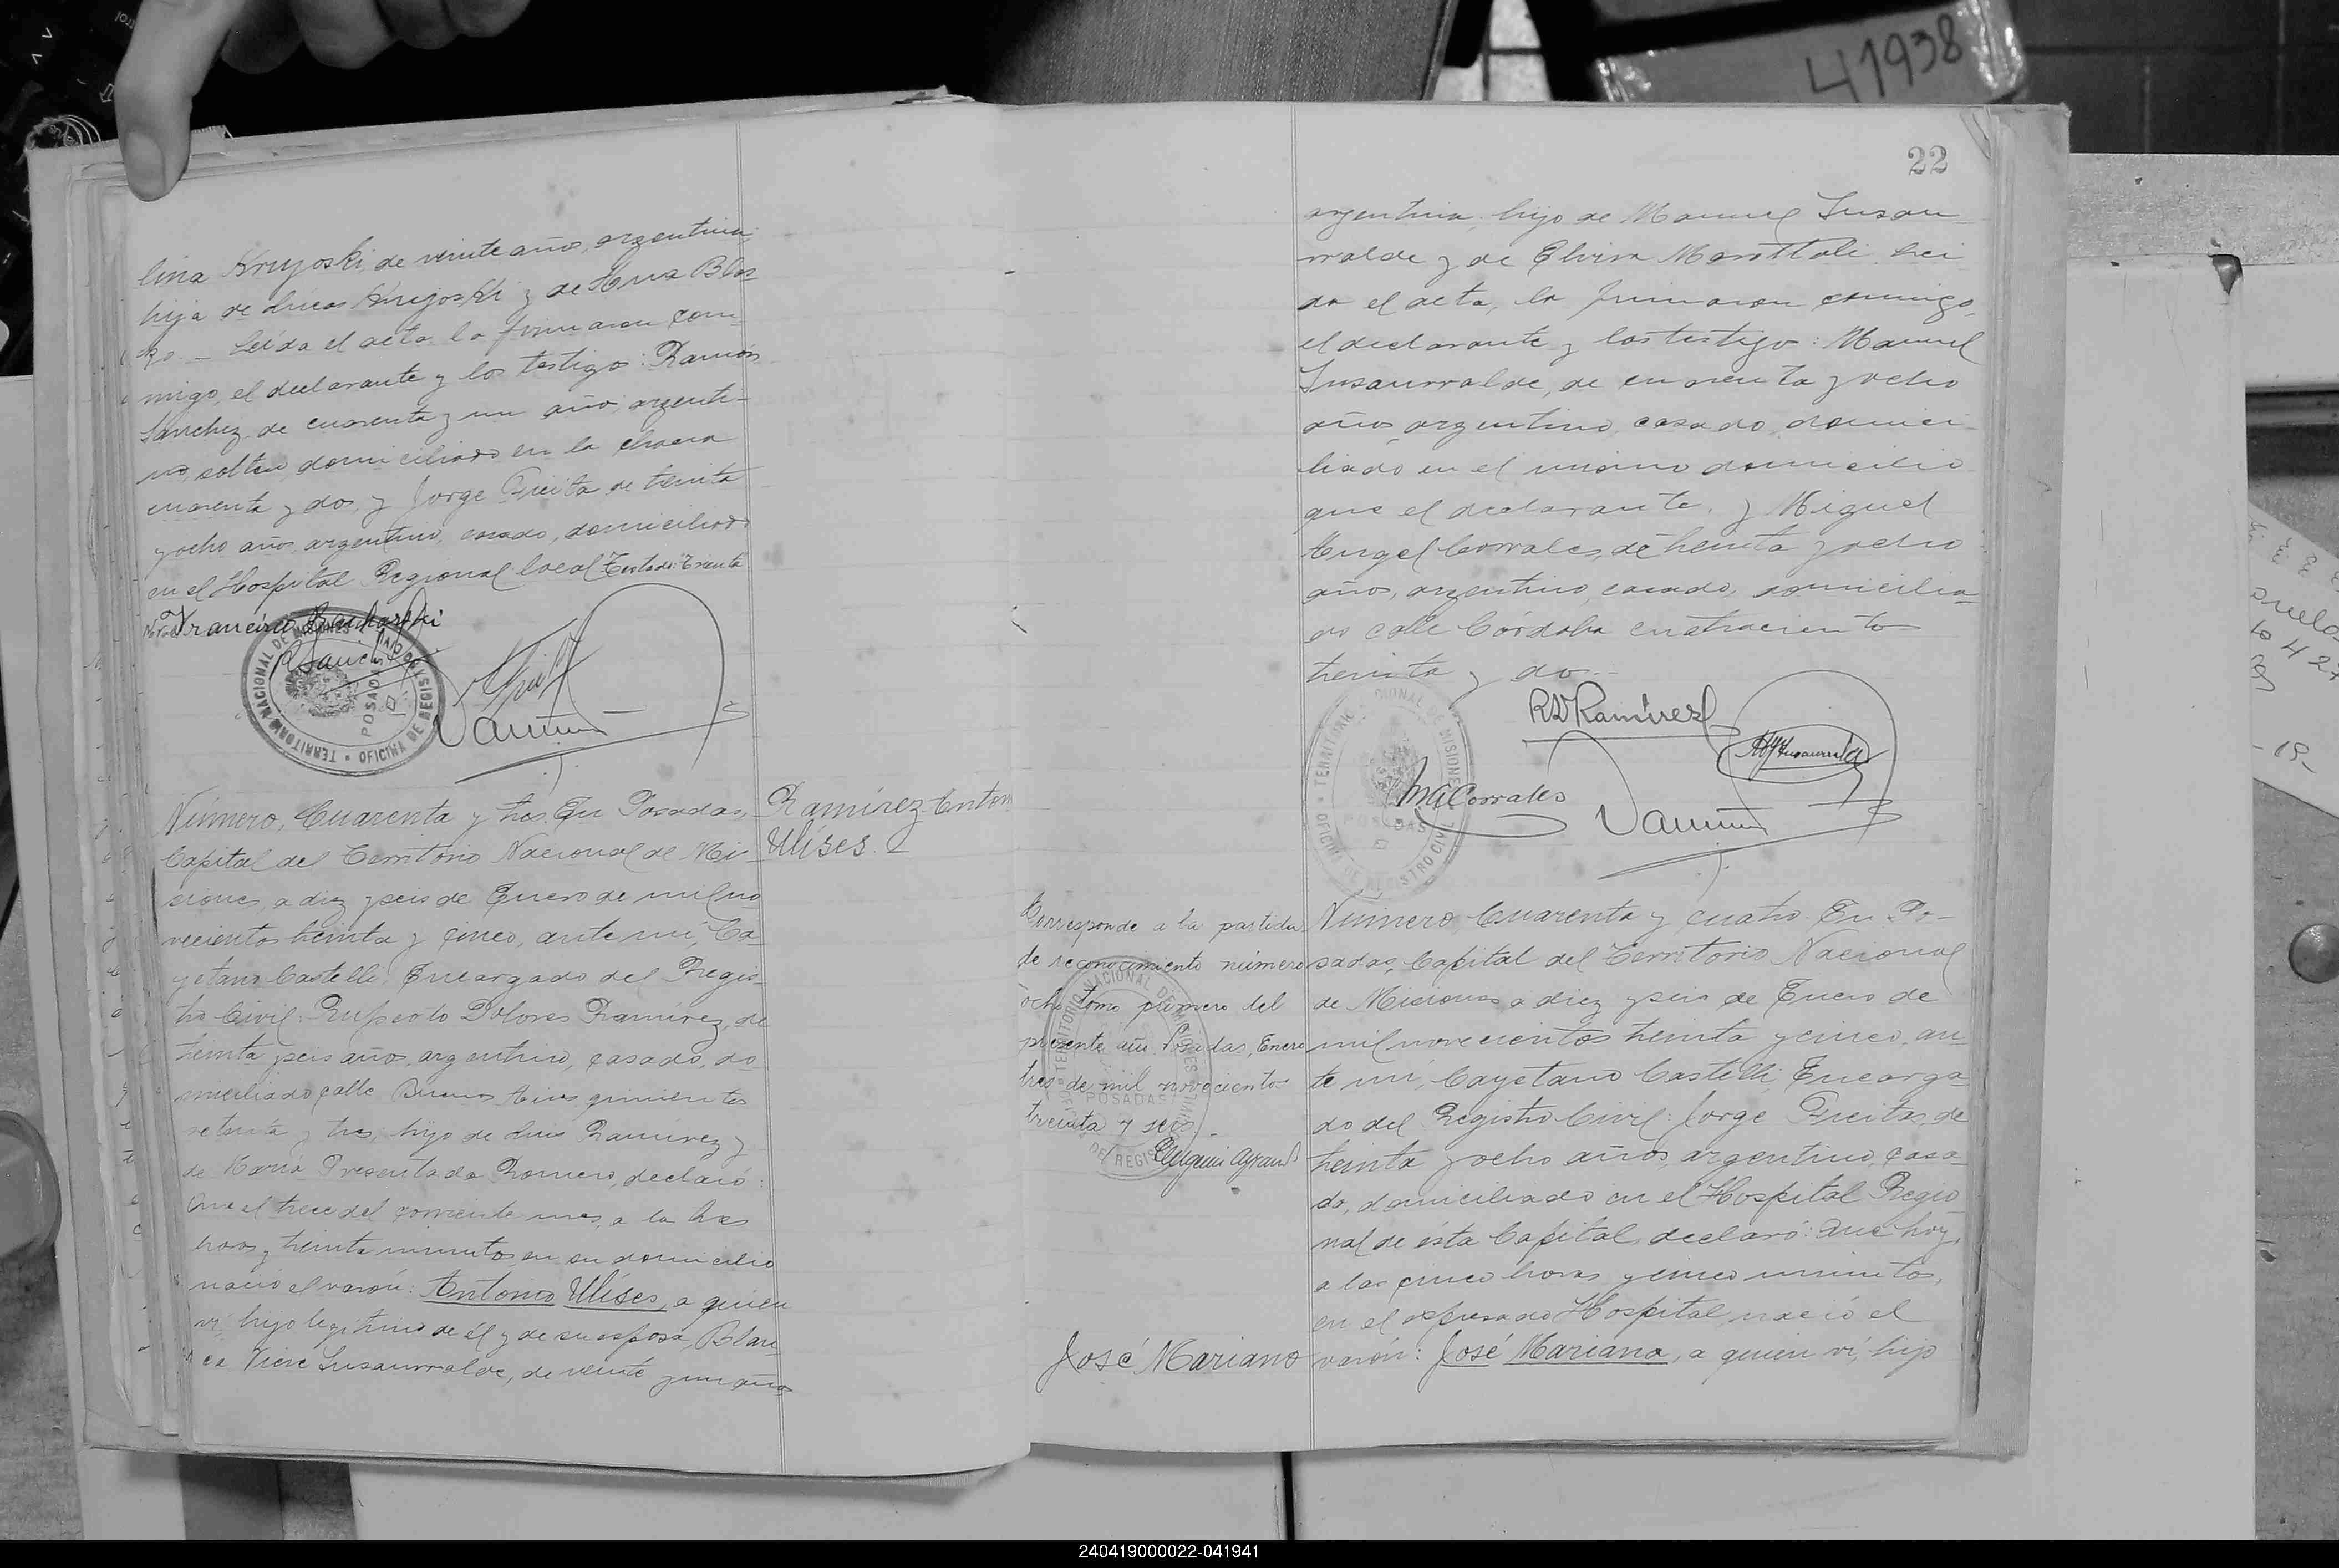 41938
22
lina Kruyoski, de veinte años, argentina,
hija de Lucas Kruyoski y de Ana Blas-
ko.— Leída el acta la firmaron con-
migo, el declarante y los testigos: Ramón
Sanchez, de cuarenta y un años, argenti-
no, soltero, domiciliado en la chacra
cuarenta y dos, y Jorge Freita, de treinta
y ocho años, argentino, casado, domiciliado
en el Hospital Regional local. Testado: treinta
Francisco
R Sanchez
TERRITORIO NACIONAL DE MISIONES
OFICINA DE REGISTRO CIVIL
POSADAS
Número, Cuarenta y tres. En Posadas,
Capital del Territorio Nacional de Mi-
siones, a diez y seis de Enero de mil no-
vecientos treinta y cinco, ante mí, Ca-
yetano Castelli, Encargado del Regis-
tro Civil: Ruperto Dolores Ramírez, de
treinta y seis años, argentino, casado, do-
miciliado calle Buenos Aires quinientos
setenta y tres, hijo de Luis Ramírez y
de María Presentada Romero, declaró:
Que el trece del corriente mes, a las tres
horas y treinta minutos en su domicilio
nació el varón: Antonio Ulíses, a quien
vi, hijo legítimo de él y de su esposa, Blan-
ca Susaurralde, de veinte y un años
Ramírez Anton
Ulíses.
argentina, hija de Manuel Susau-
rralde y de Elvira Marottoli. Lei-
da el acta, la firmaron conmigo,
el declarante y los testigos: Manuel
Susaurralde, de cuarenta y ocho
años, argentino, casado, domici-
liado en el mismo domicilio
que el declarante, y Miguel
Angel Corrales, de treinta y ocho
años, argentino, casado, domicilia-
do calle Córdoba cuatrocientos
treinta y dos.—
RDRamírez
MSusaurralde
MACorrales
TERRITORIO NACIONAL DE MISIONES
OFICINA DE REGISTRO CIVIL
POSADAS
Corresponde a la partida
de reconocimiento número
ocho tomo primero del
presente año. Posadas, Enero
tres de mil novecientos
treinta y seis.
TERRITORIO NACIONAL DE MISIONES
POSADAS
José Mariano
Número Cuarenta y cuatro. En Po-
sadas, Capital del Territorio Nacional
de Misiones a diez y seis de Enero de
mil novecientos treinta y cinco, an-
te mí, Cayetano Castelli, Encarga-
do del Registro Civil: Jorge Freitas, de
treinta y ocho años, argentino, casa-
do, domiciliado en el Hospital Regio-
nal de ésta Capital, declaró: Que hoy,
a las cinco horas y cinco minutos,
en el expresado Hospital nació el
varón: José Mariano, a quien vi, hijo
240419000022-041941